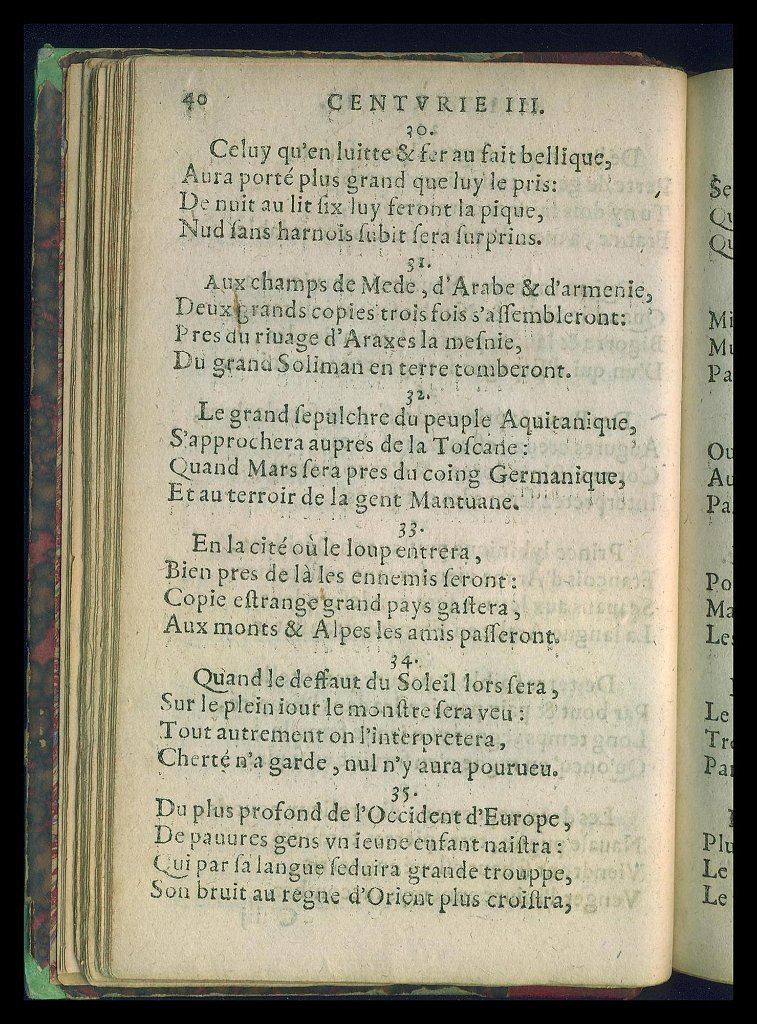 40 CENTVRIE III.
30.
Celuy qu'en luitte & fer au fait bellique,
Aura porté plus grand que luy le pris:
De nuit au lit ſix luy feront la pique,
Nud ſans harnois ſubit ſera ſurprins.
31.
Aux champs de Mede, d'Arabe & d'armenie,
Deux grands copies trois fois s'aſſembleront:
Pres du riuage d'Araxes la meſnie,
Du grand Soliman en terre tomberont.
32.
Le grand ſepulchre du peuple Aquitanique,
S'approchera aupres de la Toſcane:
Quand Mars ſera pres du coing Germanique,
Et au terroir de la gent Mantuane.
33.
En la cité où le loup entrera,
Bien pres de là les ennemis ſeront:
Copie eſtrange grand pays gaſtera,
Aux monts & Alpes les amis paſſeront.
34.
Quand le deffaut du Soleil lors ſera,
Sur le plein iour le monſtre ſera veu:
Tout autrement on l'interpretera,
Cherté n'a garde, nul n'y aura pourueu.
35.
Du plus profond de l'Occident d'Europe,
De pauures gens vn ieune enfant naiſtra:
Qui par ſa langue ſeduira grande trouppe,
Son bruit au regne d'Orient plus croiſtra,
Se
Qu
Qu
Mi
Mu
Pa
Ou
Au
Pa
Po
Ma
Le
Le
Tr
Par
Plu
Le
Le